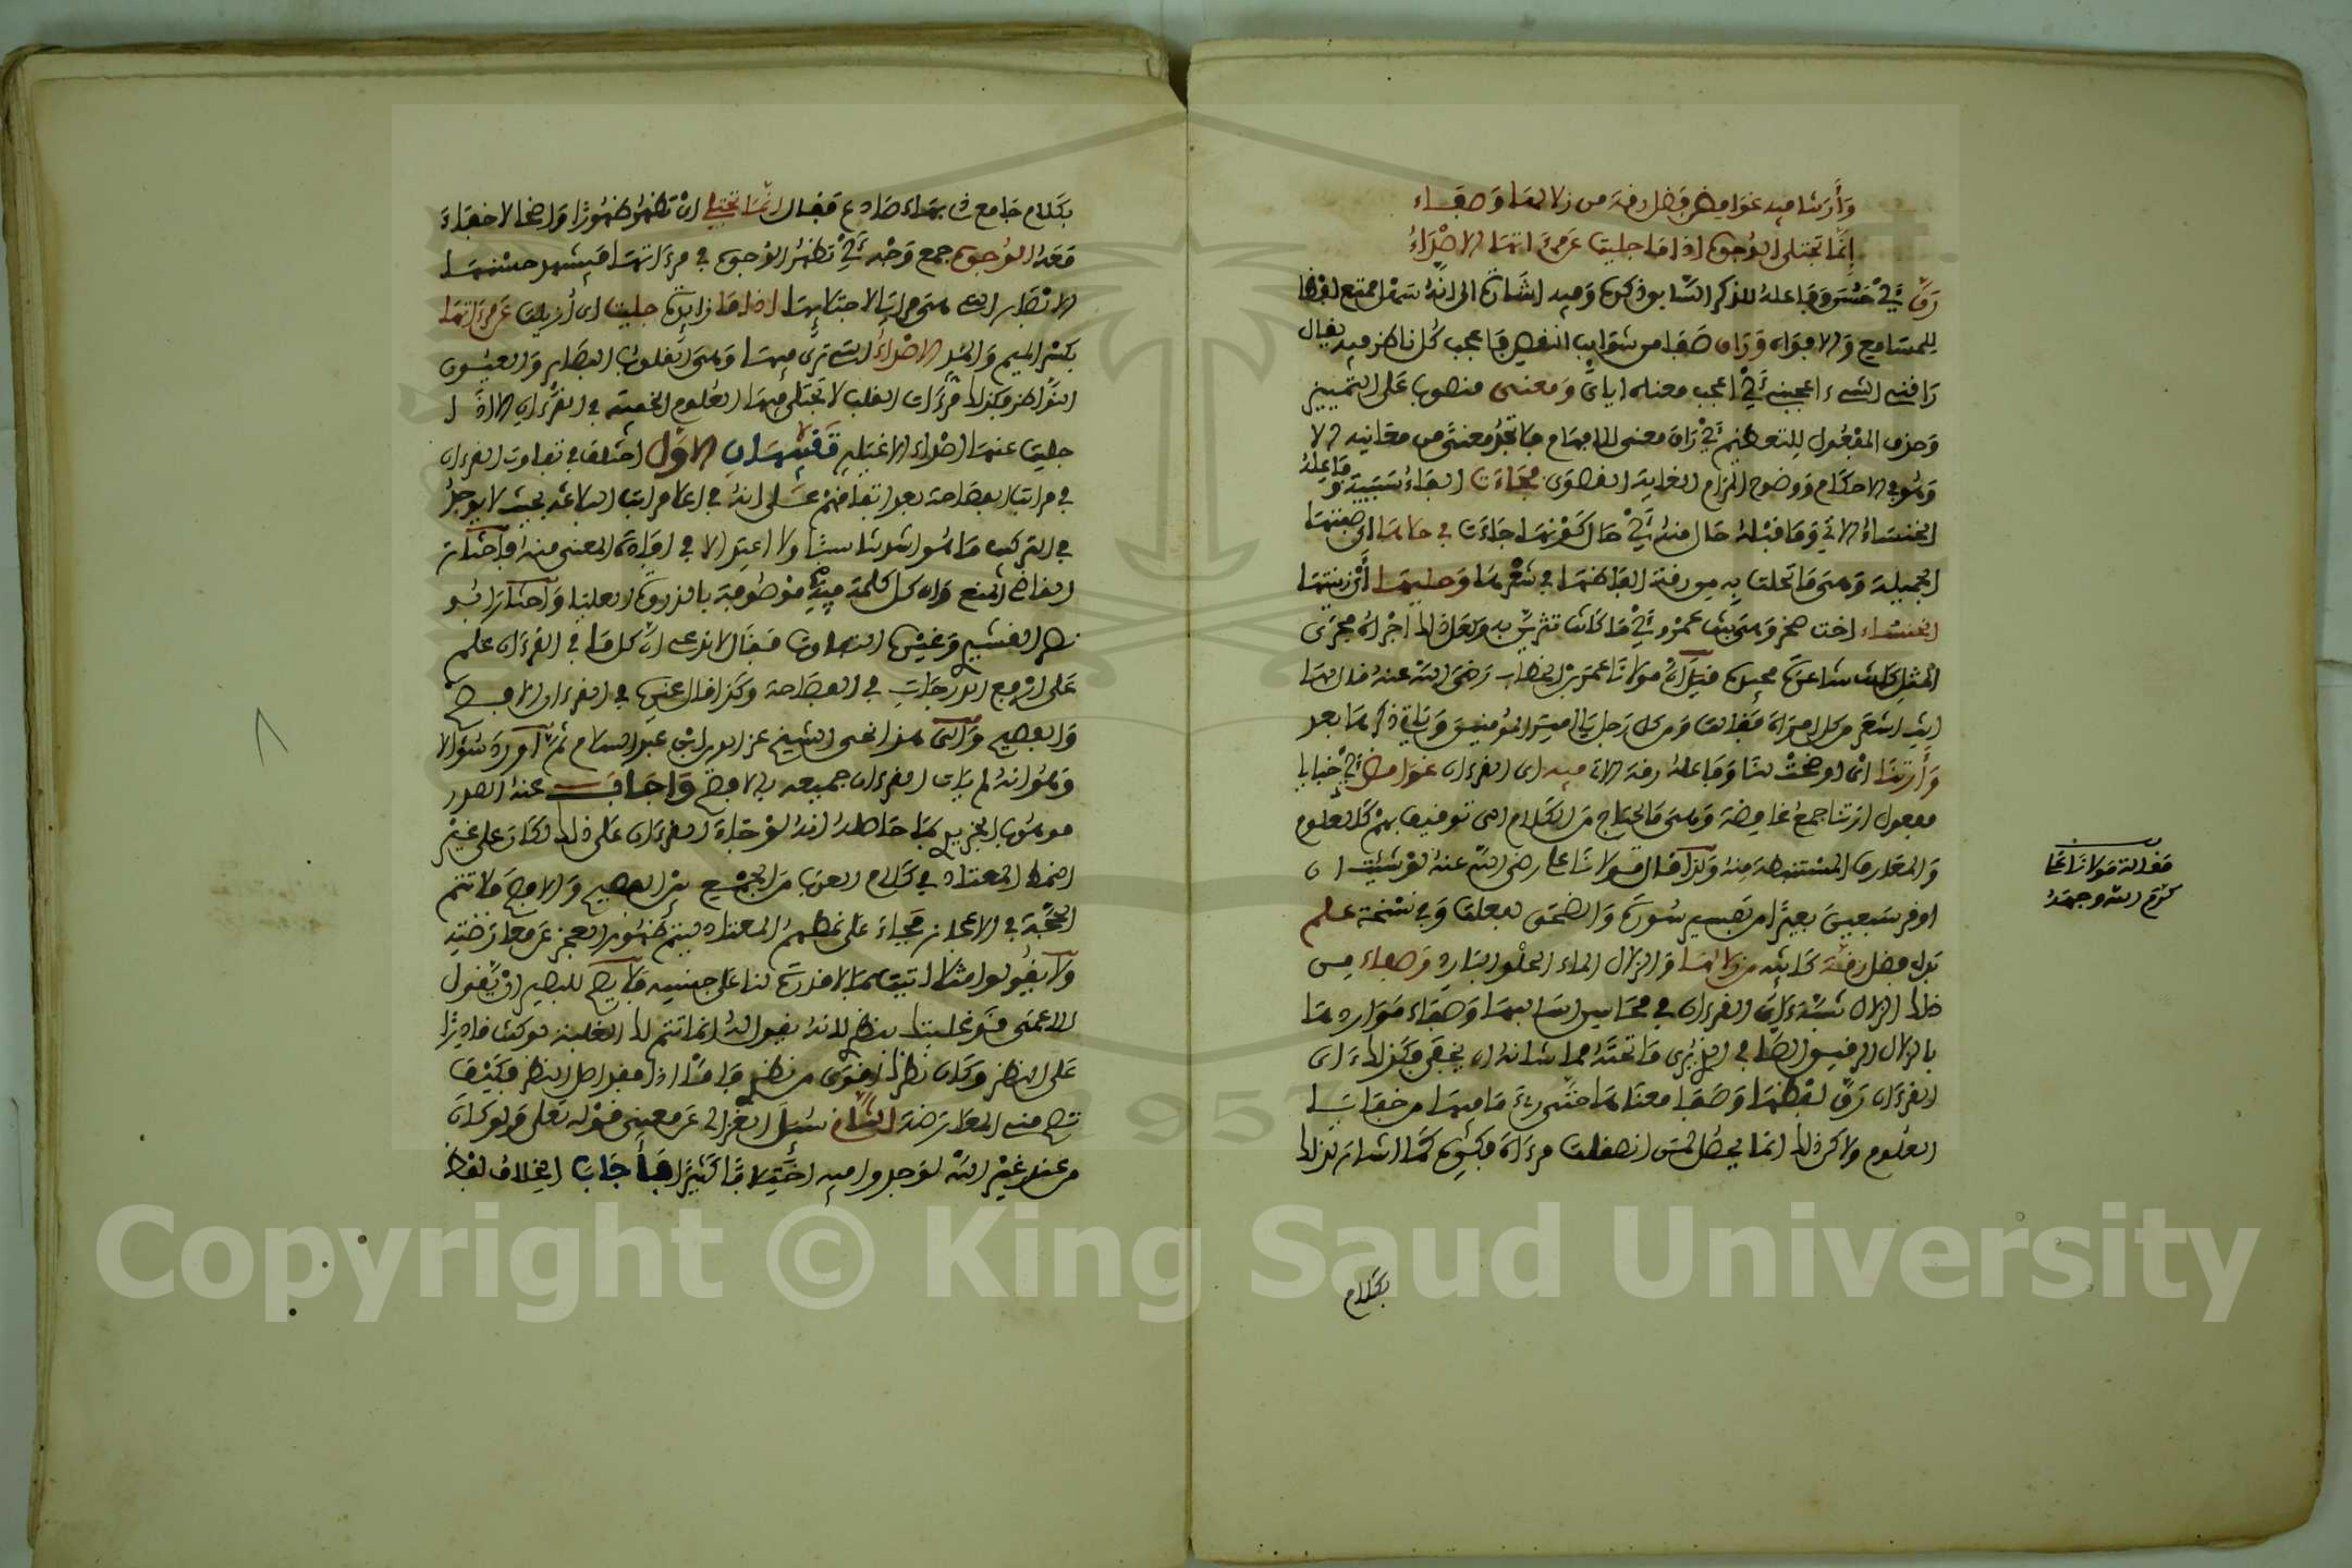 وَأَرَتنا فيه غوامضَ فضلٍ رقة من زلالها وصفاء
إنما تجتلى الوجوه إذا ما جليت عن مرءاتها الأصداء
رق أي حسن وفاعله للذكر السابق ذكره وفيه إشارة إلى أنه سهل ممتع لفظا
للمسامع والأفواه وراق صفا من شوائب النقص فأعجب كل ناظر فيه يقال
راقني الشيء أعجبني أي أعجب معناه إياي ومعنى منصوب على التمييز
وحذف المفعول للتعظيم أي راق معنى للأفهام فلا تجد معنى من معانيه إلا
وهو في الإحكام ووضوح المرام الغاية القصوى فجاءت الفاء سببية وفاعله
الخنساء الآتي وما قبله حال منه أي حال كونها جاءت في حلاها أي صفتها
الجميلة وهي ما تحلت به من رقة ألفاظها في شعرها وحليها أي زينتها
الخنساء أخت صخر وهي بنت عمرو أي ما كانت تتزين به ولعل ذلك أجراه مجرى
المثل كانت شاعرة مجيدة قيل إن مولانا عمر بن الخطاب رضي الله عنه قال لها
أنت أشعر من كل امرأة فقالت ومن كل رجل يا أمير المؤمنين ويأتي ذكرها بعد
وأرتنا أي أوضحت لنا وفاعله رقة الآتي فيه أي القرءان غوامض أي خبايا
مفعول أرتنا جمع غامضة وهي ما يحتاج من الكلام إلى توقيف بهم كالعلوم
والمعارف المستنبطة منه ولذا قال مولانا علي رضي الله عنه لو شئت أن
أوقر سبعين بعيرا من تفسير سورة والضحى لفعلت وفي نسخة علم
بدل فضل رقة كائنة من زلالها والزلال الماء الحلو البارد وصفاء من
ذلك الزلال شبه ءاي القرءان في محاسن أساليبها وصفاء مواردها
بالزلال الرقيق الصافي الذي يُرى ما تحته مما شأنه أن يخفى فكذلك ءاي
القرءان رق لفظها وصفا معناها حتى رئ ما فيها من خفايا
العلوم ولاكن ذلك إنما يحصل لمن انصقلت مرءاة فكره كما أشار لذلك
مقالة مولانا علي
كرم الله وجهه
بكلام
بكلام جامع فقال إنما تجتلى أي تظهر ظهورا واضحا لا خفاء
معه الوجوه جمع وجه أي تظهر الوجوه في مرءاتها فيشهد حسنها
الأنظار التي هي مراتب لاجتلائها إذا ما زائدة جليت أي أزيلت عن مرءاتها
بكسر الميم والمد الأصداء التي ترى فيها وهي القلوب البصائر والعيون
النواظر وكذلك مرءاة القلب لا تجتلي فيها العلوم الخفية في القرءان إلا إذا
جليت عنها أصداء الأغيار تنبيهان الأول اختلف في تفاوت القرءان
في مراتب الفصاحة بعد اتفاقهم على أنه في أعلا مراتب البلاغة بحيث لا يوجد
في التركيب ما هو أشد تناسبا ولا اعتدالا في إفادة المعنى منه فاختار
القاضي المنع وأن كل كلمة فيه موصوفة بالذروة العليا واختار أبو
نصر القشيري وغيره التفاوت فقال لا ندعي أن كل ما في القرءان علم
على أرفع الدرجات في الفصاحة وكذا قال غيره في القرءان الأفصح
والفصيح وإلى هذا نحى الشيخ عز الدين ابن عبد السلام ثم أورد سؤالا
وهو أنه لم يأت القرءان جميعه بالأفصح وأجاب عنه الصدر
موهوب الجزري بما حاصله أنه لو جاء القرءان على ذلك لكان على غير
النمط المعتاد في كلام العرب من الجمع بين الفصيح والأفصح فلا تتم
الحجة في الإعجاز فجاء على نمطهم المعتاد ليتم ظهور العجز عن معارضته
ولا يقولوا مثلا أتيت بما لا قدرة لنا على جنسه فلا يصح للبصير أن يقول
للأعمى قد غلبتك بنظري لأنه يقول له إنما تتم لك الغلبة لو كنت قادرا
على النظر وكان نظرك أقوى من نظري وأما إذا فقد أصل النظر فكيف
تصح مني المعارضة الثاني سئل الغزالي عن معنى قوله تعلى ولو كان
من عند غير الله لوجدوا فيه اختلافا كثيرا فأجاب الخلاف لفظ